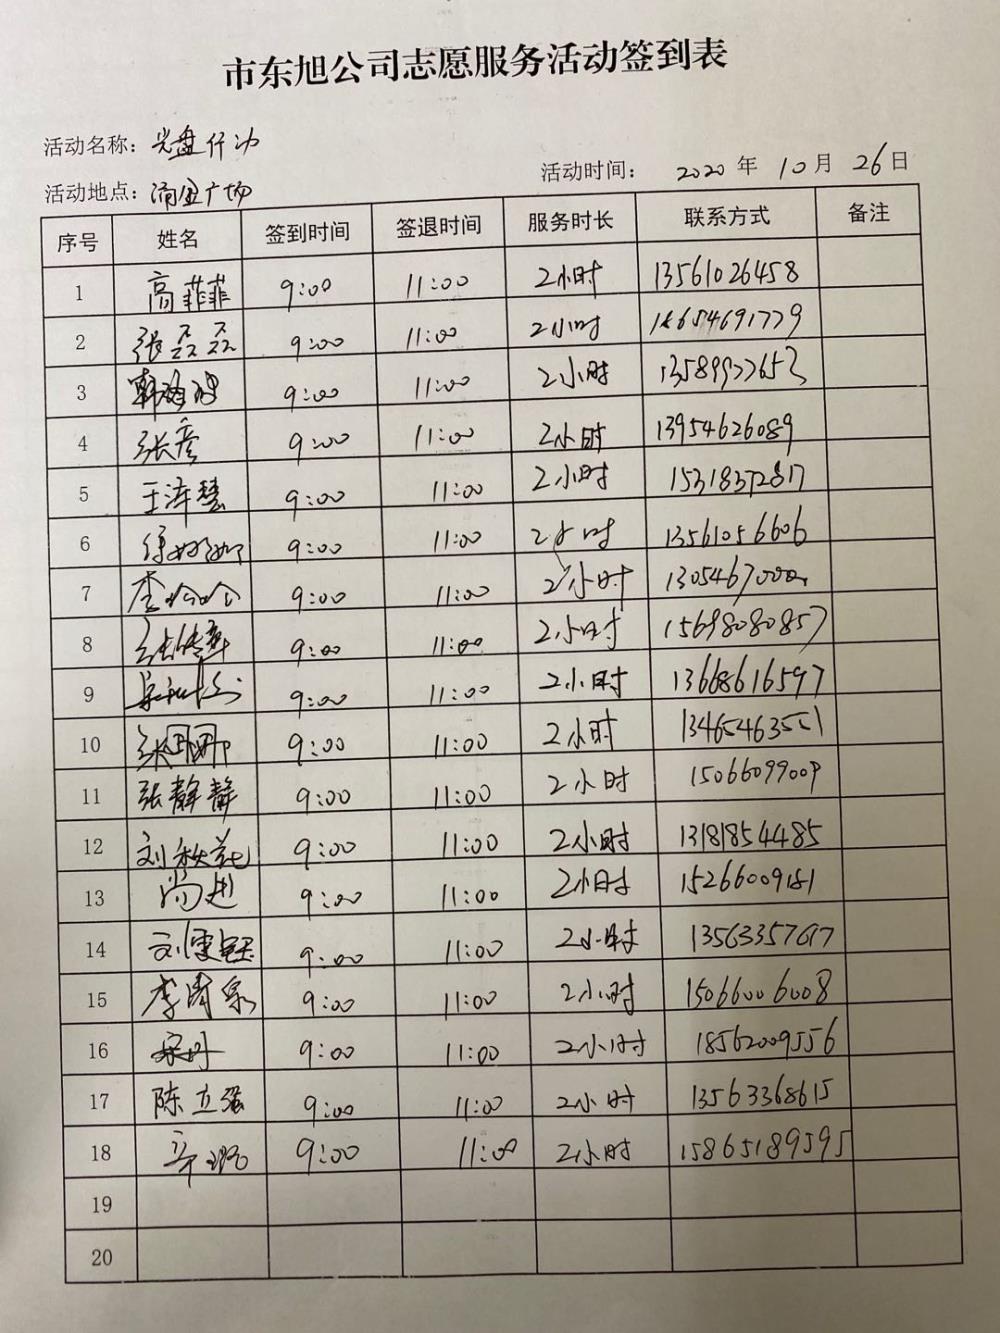 市东旭公司志愿服务活动签到表
活动名称：光盘行动
活动时间： 2020 年 10 月 26 日
活动地点：涌金广场
序号 姓名 签到时间 签退时间 服务时长 联系方式 备注
1 高菲菲 9:00 11:00 2小时 13561026458
2 张磊磊 9:00 11:00 2小时 18654691779
3 9:00 11:00 2小时 13589977653
4 张彦 9:00 11:00 2小时 13954626089
5 王泽慧 9:00 11:00 2小时 15318372817
6 9:00 11:00 2小时 13561056606
7 李哈哈 9:00 11:00 2小时
8 9:00 11:00 2小时 15698080857
9 9:00 11:00 2小时 13668616597
10 9:00 11:00 2小时 13465463551
11 张静静 9:00 11:00 2小时 15066099009
12 刘秋花 9:00 11:00 2小时 13181854485
13 尚进 9:00 11:00 2小时 15266009181
14 刘雪钰 9:00 11:00 2小时 13563357617
15 李清泉 9:00 11:00 2小时 15066006008
16 宋丹 9:00 11:00 2小时 18562009556
17 陈立强 9:00 11:00 2小时 13563368615
18 辛璐 9:00 11:00 2小时 15865189595
19
20